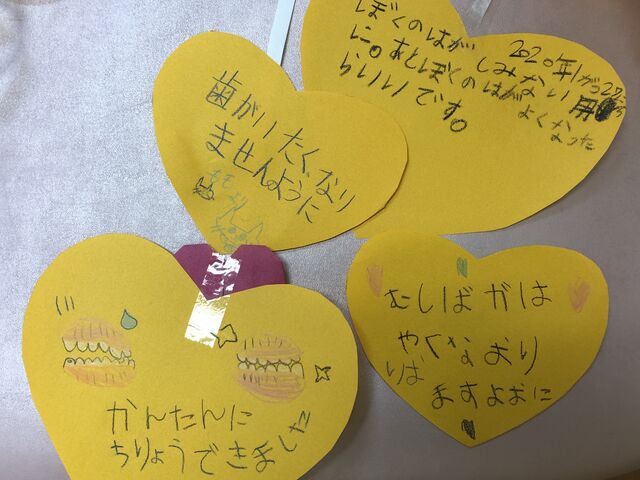 ぼくのはが
しみないように。あとぼくのはがよくなった
らいいです。
2020年1がつ27
歯がいたくなり
ませんように
もも
より
むしばがは
やくなおり
りは
ますよおに
かんたんに
ちりょうできました